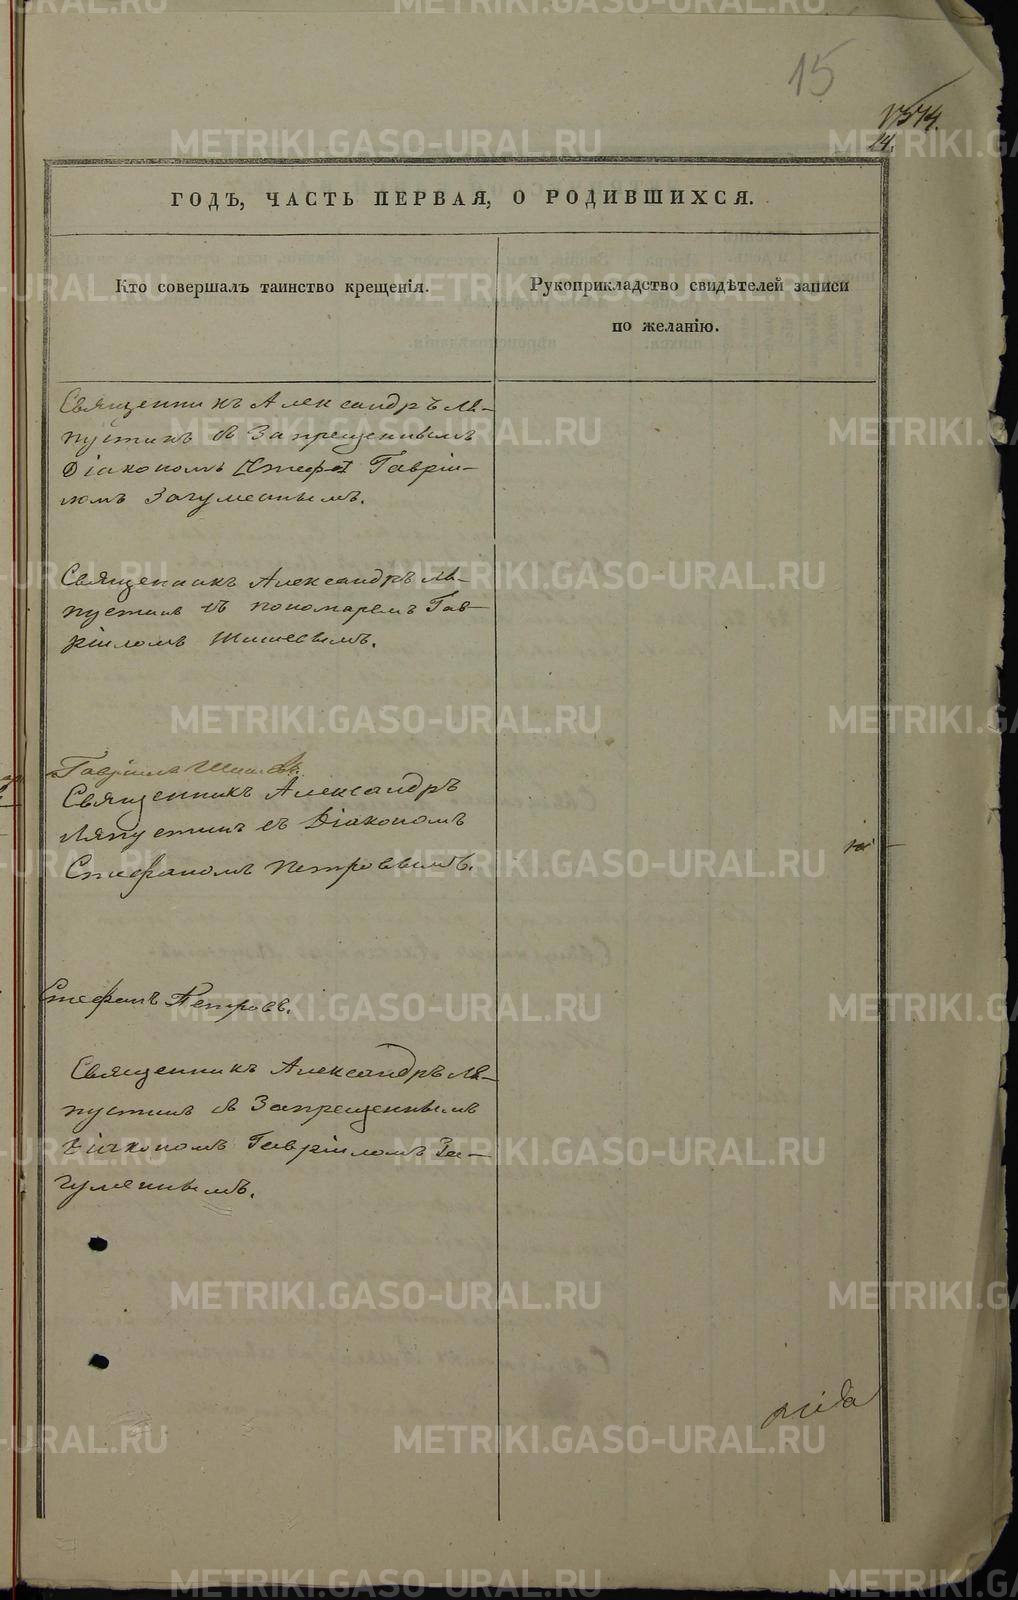 15
1574.
14.
ГОДЪ, ЧАСТЬ ПЕРВАЯ, О РОДИВШИХСЯ.
Кто совершалъ таинство крещенія.
Рукоприкладство свидѣтелей записи
по желанію.
Священникъ Александръ Ля-
пустинъ съ Запрещеннымъ
Діакономъ Гаврі-
иломъ Загуменнымъ.
Священникъ Александръ Ля-
пустинъ съ пономаремъ Гав-
ріиломъ Шишевымъ.
Гавріилъ Шишевъ.
Священникъ Александръ
Ляпустинъ съ Діакономъ
Стефаномъ Петровымъ.
Стефанъ Петровъ.
Священникъ Александръ Ля-
пустинъ съ Запрещеннымъ
Діакономъ Гавріиломъ За-
гуменнымъ.
METRIKI.GASO-URAL.RU